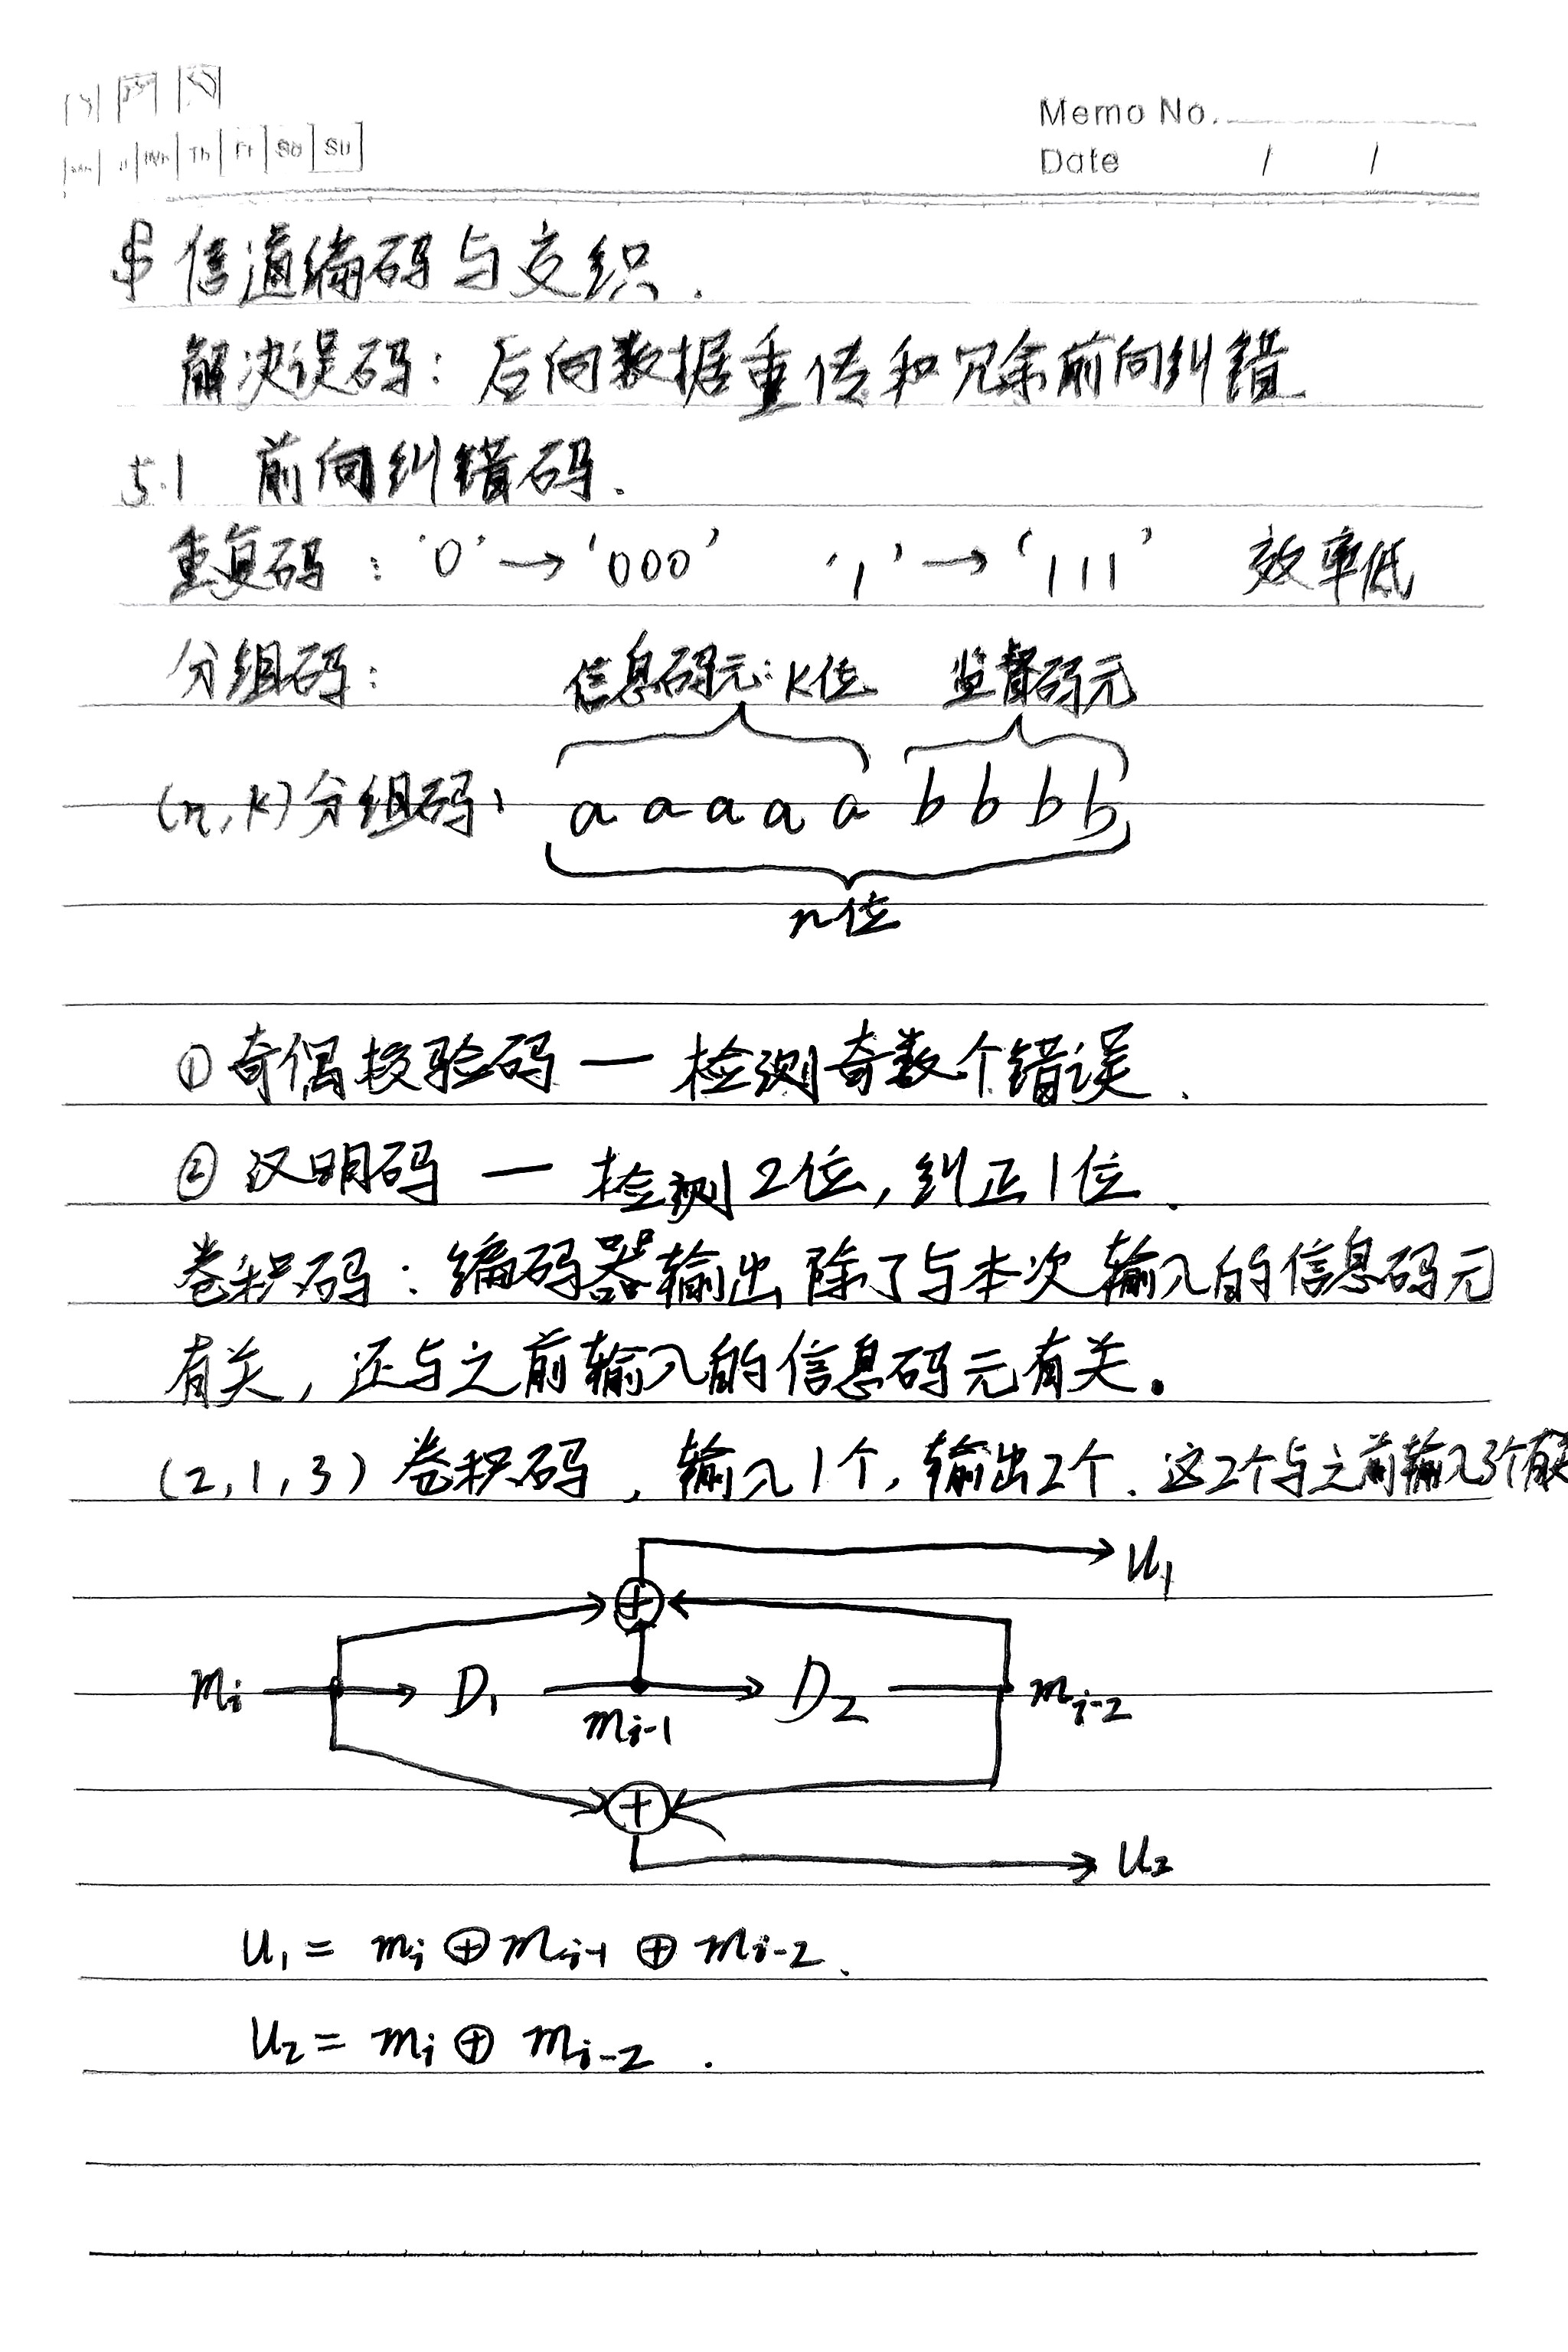 Th Fr Sa Su
Memo No.
Date / /
§ 信道编码与交织.
解决误码: 后向数据重传和冗余前向纠错
5.1 前向纠错码.
重复码: '0' → '000' '1' → '111' 效率低
分组码: 信息码元: k位 监督码元
(n,k)分组码: a a a a a b b b b
n位
① 奇偶校验码 — 检测奇数个错误.
② 汉明码 — 检测2位, 纠正1位.
卷积码: 编码器输出除了与本次输入的信息码元
有关, 还与之前输入的信息码元有关。
(2,1,3) 卷积码, 输入1个, 输出2个. 这2个与之前输入3个有关
U₁
mᵢ D₁ mᵢ₋₁ D₂ mᵢ₋₂
U₂
U₁ = mᵢ ⊕ mᵢ₋₁ ⊕ mᵢ₋₂.
U₂ = mᵢ ⊕ mᵢ₋₂.